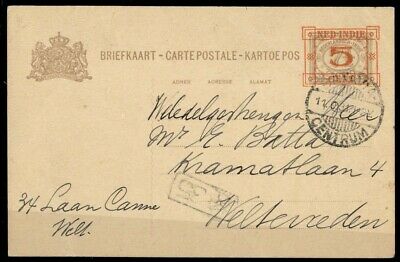 NED-INDIE
5
BRIEFKAART - CARTE POSTALE - KARTOE POS
ADRES ADRESSE ALAMAT
CENTRUM
Weledelgestrengen Heer
Mr E. Batta
Kramatlaan 4
Weltevreden
34 Laan Canne
Welt.